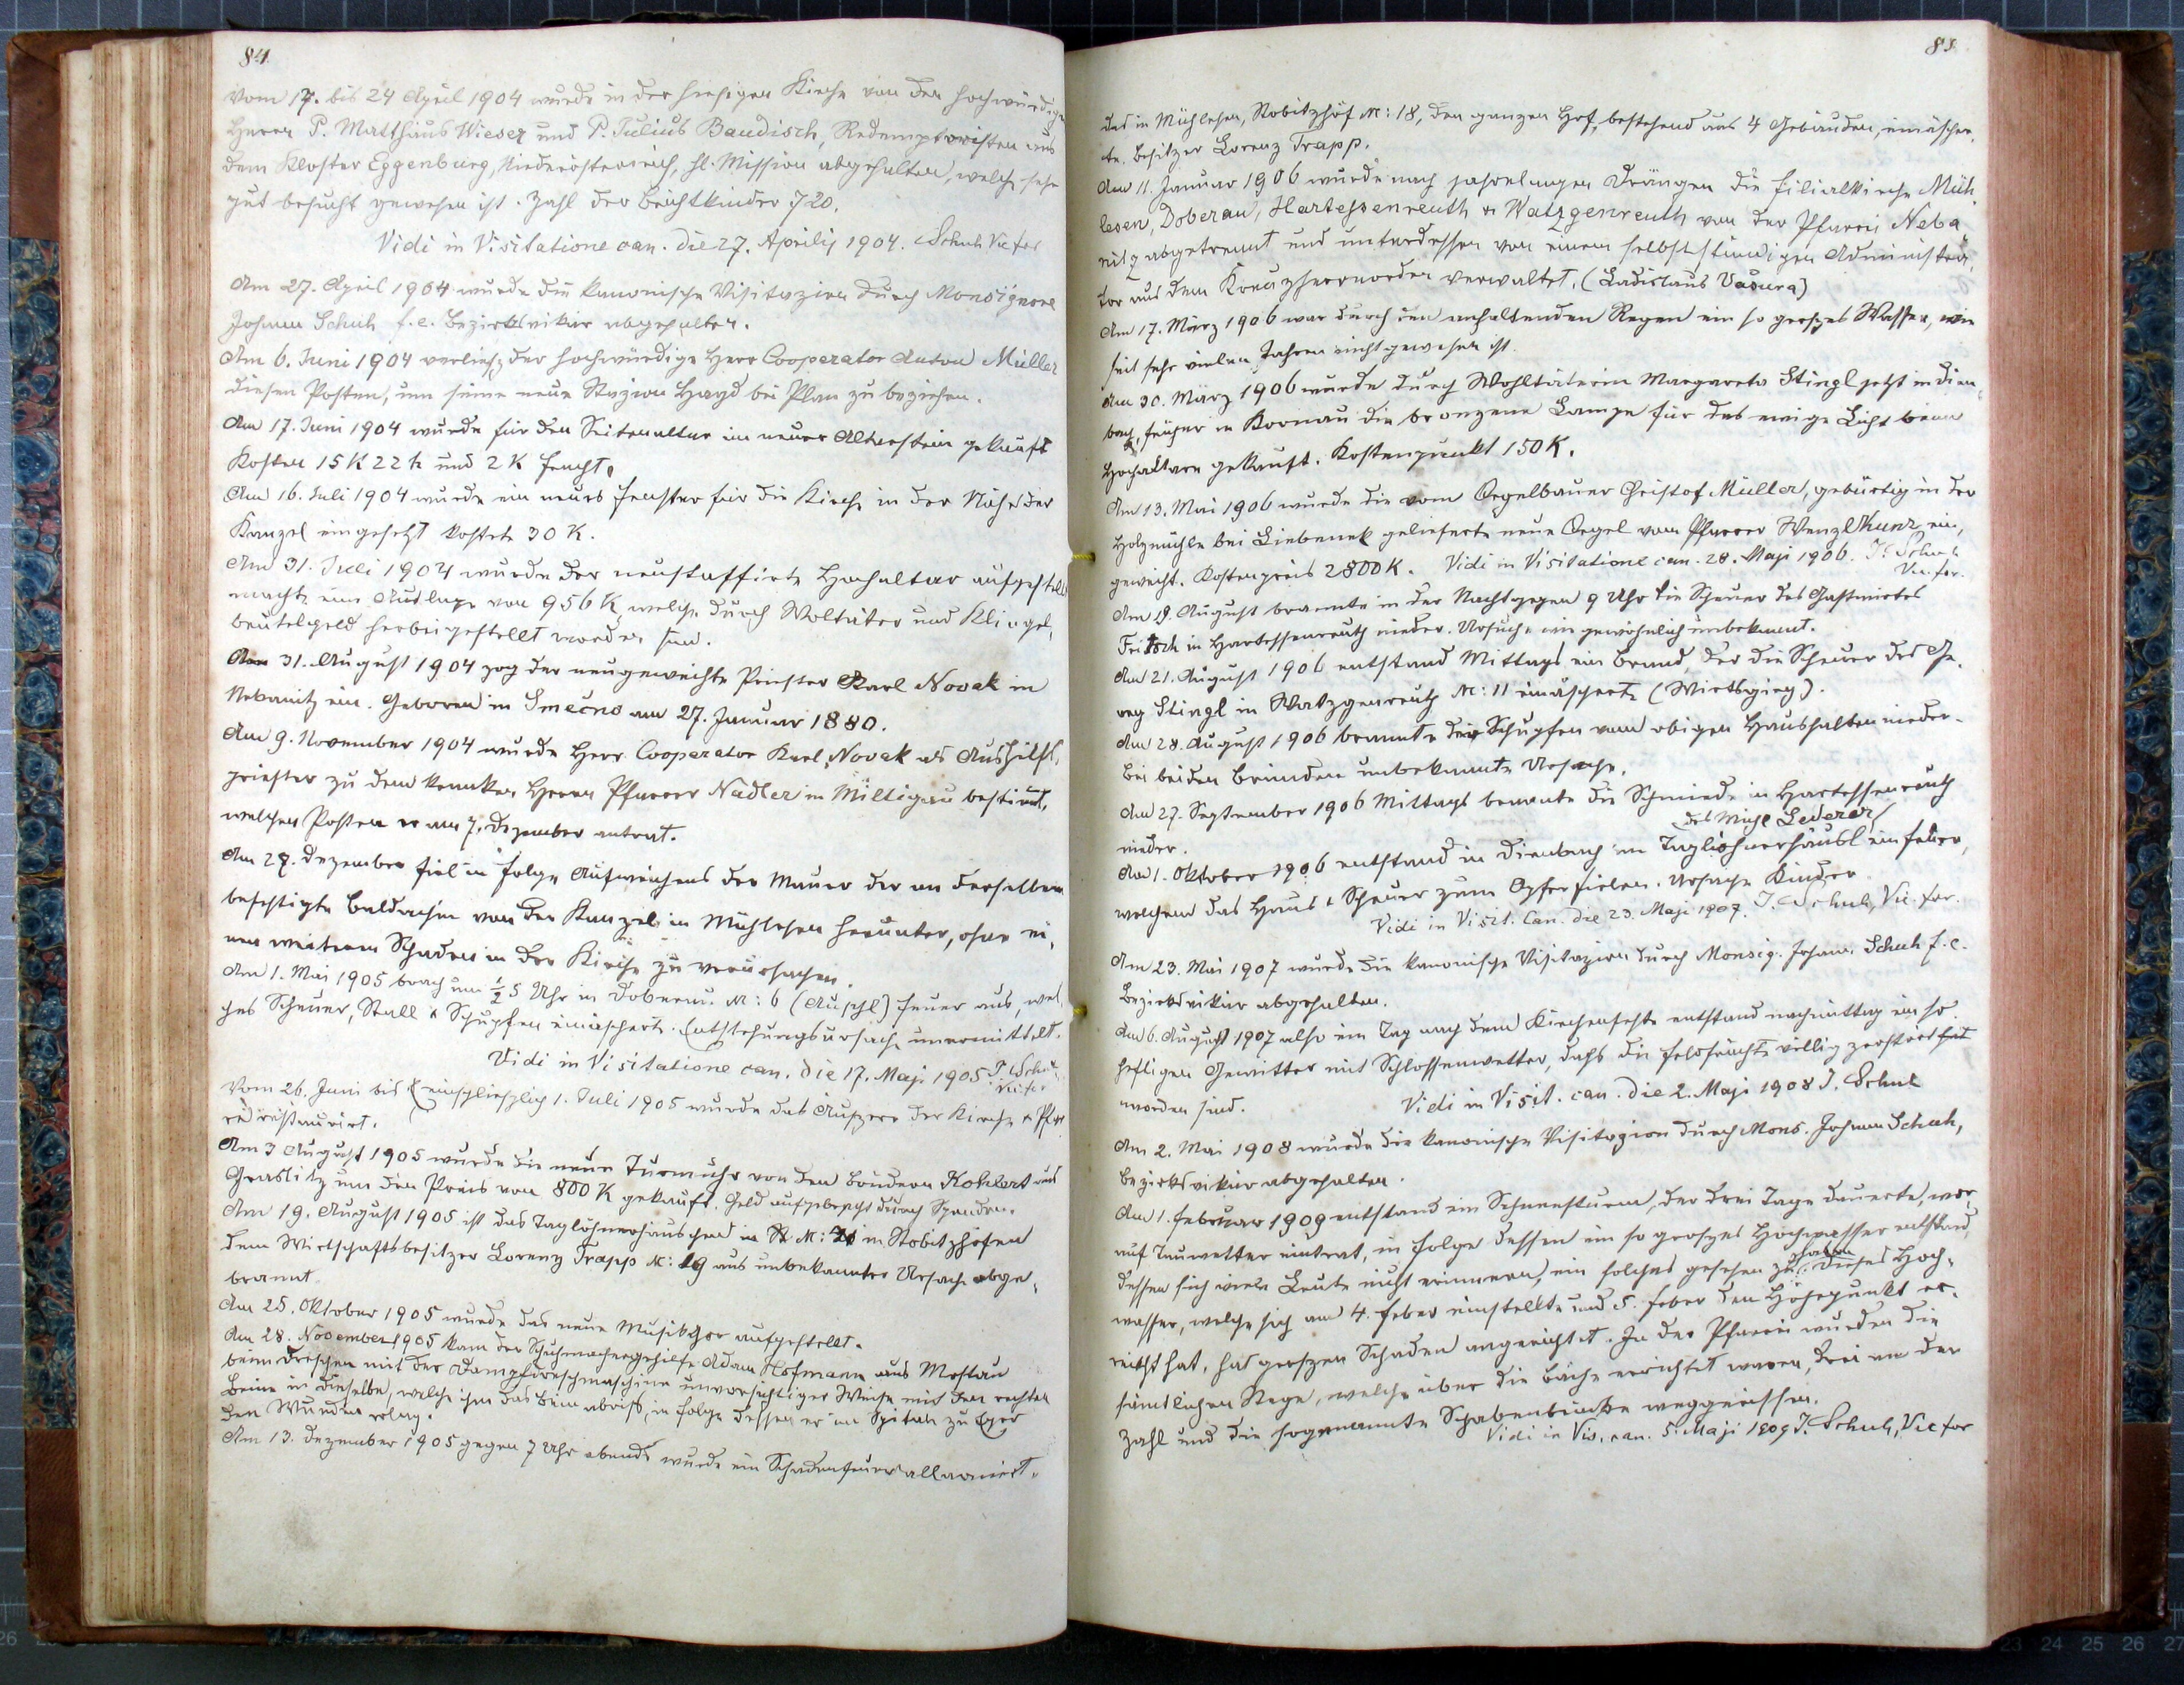 84.
Vom 17. bis 24 April 1904 wurde in der hiesigen Kirche von den hochwürdigen
Herren P. Matthäus Wieser und P. Julius Baudisch, Redemptoristen aus
dem Kloster Eggenburg, Niederösterreich, hl. Mission abgehalten, welche sehr
gut besucht gewesen ist. Zahl der Beichtkinder 720.
Vidi in Visitatione can. die 27. Aprilis 1904. Schuh Vic for
Am 27. April 1904 wurde die kanonische Visitazion durch Monsignore
Johann Schuh f. e. Bezirksvikär abgehalten.
Am 6. Juni 1904 verließ der hochwürdige Herr Cooperator Anton Müller
diesen Posten, um seine neue Stazion Hayd bei Plan zu beziehen.
Am 17. Juni 1904 wurde für den Seitenaltar ein neuer Altarstein gekauft
Kosten 15 K 22 h und 2 K Fracht.
Am 16. Juli 1904 wurde ein neues Fenster für die Kirche in der Nähe der
Kanzel eingesetzt kostete 30 K.
Am 31. Juli 1904 wurde der neustaffirte Hochaltar aufgestellt
machte eine Auslage von 956 K, welche durch Woltäter und Klingel,
beutelgeld herbeigestellt worden sind.
Am 31. August 1904 zog der neugeweihte Priester Karl Novak in
Nebanitz ein. Geboren in Smečno am 27. Januar 1880.
Am 9. November 1904 wurde Herr Cooperator Karl Novak als Aushilfs,
priester zu dem kranken Herrn Pfarrer Nadler in Miltigau bestimt,
welchen Posten er am 7. Dezember antrat.
Am 27. Dezember fiel in Folge Aufweichens der Mauer der an derselben
befestigte Baldachin von der Kanzel in Mühlesen herunter, ohne ei,
nen weiteren Schaden in der Kirche zu verursachen.
Am 1. Mai 1905 brach um ½ 5 Uhr in Doberau N: 6 (Aufschl) Feuer aus, wel,
ches Scheuer, Stall & Schupfen einäscherte. Entstehungsursache unermittelt.
Vidi in Visitatione can. die 17. Maji 1905 J. Schuh
Vic for
Vom 26. Juni bis einschließlich 1. Juli 1905 wurde das Äußere der Kirche & Pfar
rei restaurirt.
Am 3 August 1905 wurde die neue Turmuhr von den Brüdern Kohlert aus
Graslitz um den Preis von 800 K gekauft. Geld aufgebracht durch Spenden.
Am 19. August 1905 ist das Taglöhnerhäuschen in St N: 21 in Stobitzhöfen
dem Wirtschaftsbesitzer Lorenz Trapp N: 19 aus unbekannter Ursache abge,
brannt
Am 25. Oktober 1905 wurde das neue Musikchor aufgestellt.
Am 28. November 1905 kam der Schuhmachergehilfe Adam Hofmann aus Mostau
beim Dreschen mit der Dampfdreschmaschine unvorsichtiger Weise mit dem rechten
Beine in dieselbe, welche ihm das Bein abriß, in Folge dessen er im Spitale zu Eger
den Wunden erlag.
Am 13. Dezember 1905 gegen 7 Uhr abends wurde ein Schadenfeuer allarmiert.
85.
das in Mühlesen, Stobitzhöf N: 18, den ganzen Hof, bestehend aus 4 Gebäuden, einäscher,
te. Besitzer Lorenz Trapp.
Am 11. Januar 1906 wurde nach jahrelangen Drängen die Filialkirche Müh,
lesen, Doberau, Hartessenreuth & Watzgenreuth von der Pfarrei Neba,
nitz abgetrennt und unterdessen von einem selbstständigen Administra,
tor aus dem Kreuzherrnorden verwaltet. (Ladislaus Vasura)
Am 17. März 1906 war durch den anhaltenden Regen ein so großes Wasser, wie
seit sehr vielen Jahren nicht gewesen ist.
Am 30. März 1906 wurde durch Wohltäterin Margareta Stingl jetzt in Dien,
bach, früher in Kornau die bronzene Lampe für das ewige Licht beim
Hochaltare gekauft. Kostenpunkt 150 K.
Am 13. Mai 1906 wurde die vom Orgelbauer Christof Müller, gebürtig in der
Holzmühle bei Liebenek gelieferte neue Orgel vom Pfarrer Wenzl Kunz ein,
geweiht. Kostenpreis 2800 K. Vidi in Visitatione can. 28. Maji 1906. J. Schuh
Vic. for.
Am 19. August brannte in der Nacht gegen 9 Uhr die Scheuer des Gastwirtes
Fritsch in Hartessenreuth nieder. Ursache wie gewöhnlich unbekannt.
Am 21. August 1906 entstand Mittags ein Brand, der die Scheuer des Ge,
org Stingl in Watzgenreuth N: 11 einäscherte (Wirtsgirg).
Am 28. August 1906 brannte die Schupfen vom obigen Haushalten nieder.
Bei beiden Bränden unbekannte Ursache.
Am 27. September 1906 Mittags brannte die Schmiede in Hartessenreuth
nieder. des Michl Lederer
Am 1. Oktober 1906 entstand in Dienbach im Taglöhnerhäusl ein Feuer,
welchem das Haus & Scheuer zum Opfer fielen. Ursache Kinder
Vidi in Visit. Can. die 23. Maji 1907. J. Schuh, Vic. for.
Am 23. Mai 1907 wurde die kanonische Visitazion durch Monsig. Johann Schuh f. e.
Bezirksvikär abgehalten.
Am 6. August 1907 also ein Tag nach dem Kirchenfeste entstand nachmittag ein so
heftigen Gewitter mit Schlossenwetter, daß die Feldfrüchte völlig zerstört hat
worden sind. Vidi in Visit. can. die 2. Maji 1908 J. Schuh
Am 2. Mai 1908 wurde die kanonische Visitazion durch Mons. Johann Schuh,
Bezirksvikär abgehalten.
Am 1. Februar 1909 entstand ein Schneesturm, der drei Tage dauerte, wor
auf Tauwetter eintrat, in Folge dessen ein so großes Hochwasser entstand,
dessen sich viele Leute nicht erinnern, ein solches gesehen zu haben. Dieses Hoch,
wasser, welche sich am 4. Feber einstellte und 5. Feber den Höhepunkt er,
reicht hat, hat großen Schaden angerichtet. In der Pfarrei wurden die
sämtlichen Stege, welche über die Bäche errichtet waren, drei an der
Zahl und die sogenannte Schabenbrücke weggerissen.
Vidi in Vis. can. 5. Maji 1909 J. Schuh, Vic for